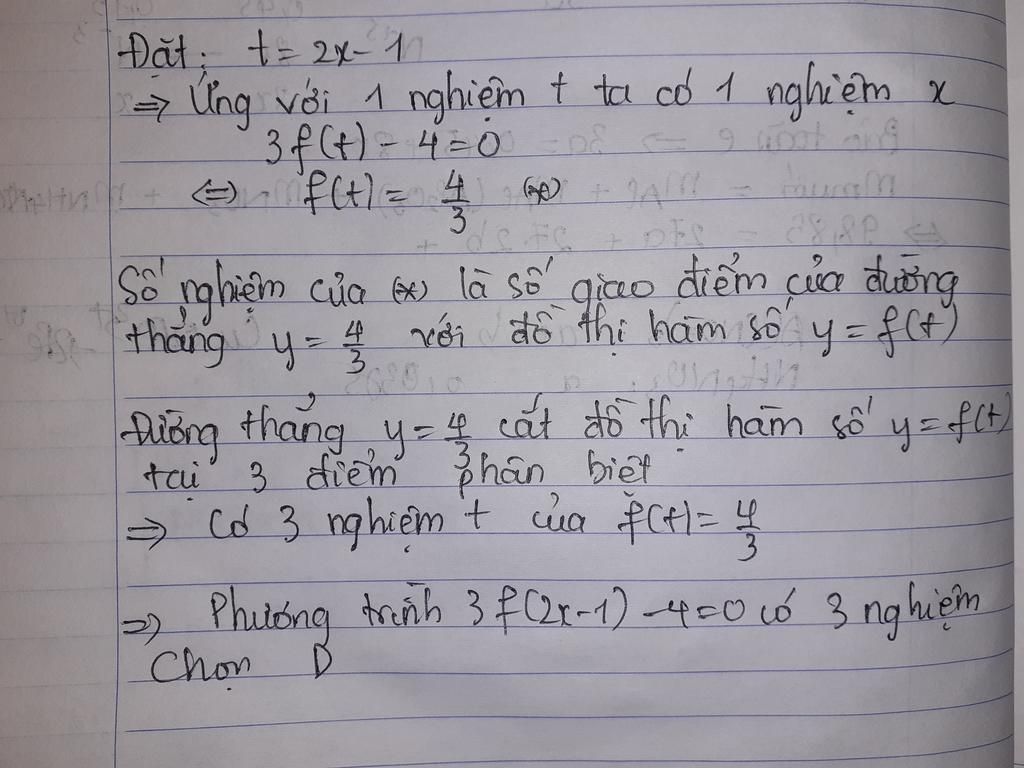 Đặt: t = 2x - 1
=> Ứng với 1 nghiệm t ta có 1 nghiệm x
3f(t) - 4 = 0
<=> f(t) = 4/3 (*)
Số nghiệm của (*) là số giao điểm của đường
thẳng y = 4/3 với đồ thị hàm số y = f(t)
Đường thẳng y = 4/3 cắt đồ thị hàm số y = f(t)
tại 3 điểm phân biệt
=> Có 3 nghiệm t của f(t) = 4/3
=> Phương trình 3f(2x-1) - 4 = 0 có 3 nghiệm
Chọn D